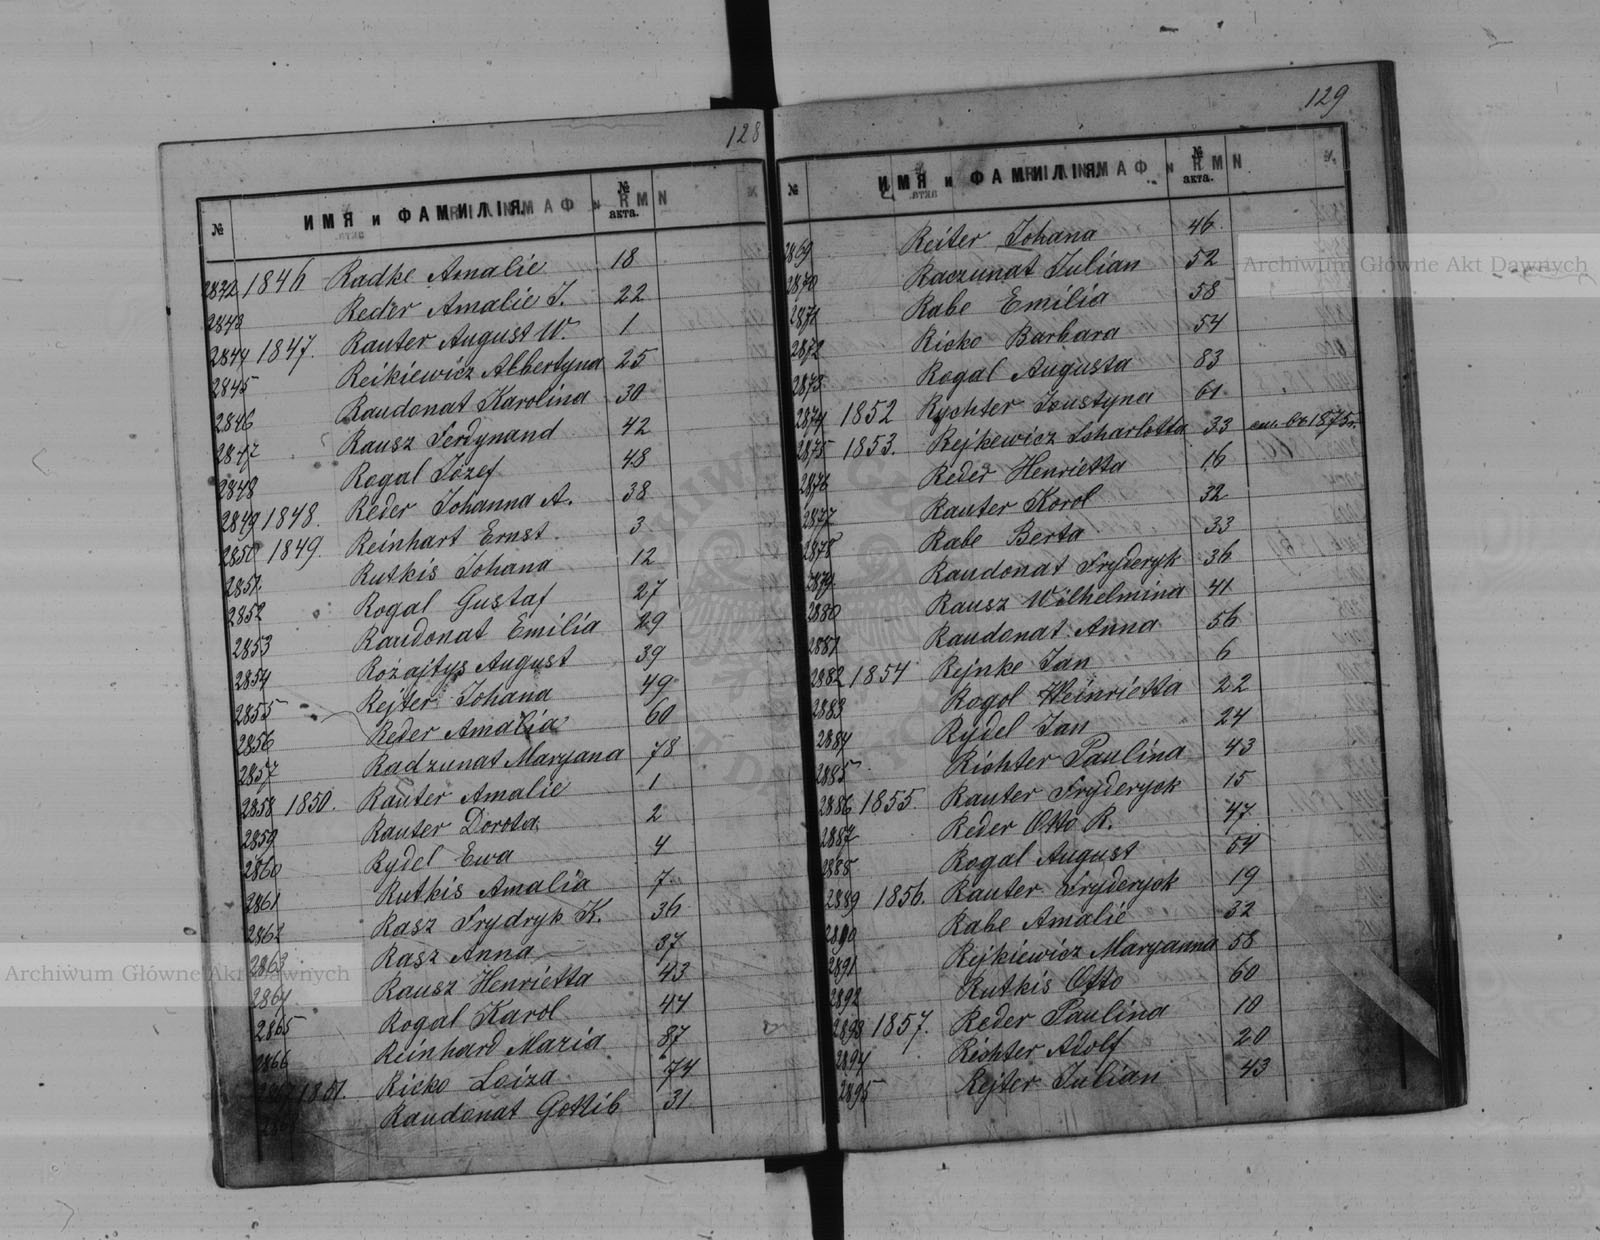 128
№ ИМЯ и ФАМИЛІЯ. № акта.
2842 1846 Radke Amalie 18
2843 Reder Amalie J. 22
2844 1847. Rauter August W. 1
2845 Reikiewicz Albertyna 25
2846 Raudonat Karolina 30
2847 Rausz Ferdynand 42
2848 Rogal Jozef 48
2849 1848. Reder Johanna A. 38
2850 1849. Reinhart Ernst 3
2851 Rutkis Johana 12
2852 Rogal Gustaf 27
2853 Raudonat Emilia 29
2854 Rozajtys August 39
2855 Rejter Johana 49
2856 Reder Amalia 60
2857 Radzunat Maryana 78
2858 1850. Rauter Amalie 1
2859 Rauter Dorota 2
2860 Rydel Ewa 4
2861 Rutkis Amalia 7
2862 Rasz Frydryk K. 36
2863 Rasz Anna 37
2864 Rausz Henrietta 43
2865 Rogal Karol 44
2866 Reinhard Maria 87
2867 1851. Ricko Loiza 74
2868 Raudonat Gottlib 31
129
№ ИМЯ и ФАМИЛІЯ. № акта.
2869 Reiter Johana 46
2870 Raczunat Julian 52
2871 Rabe Emilia 58
2872 Ricko Barbara 54
2873 Rogal Augusta 83
2874 1852 Rychter Joustyna 61
2875 1853. Rejkewicz Scharlotta 33
2876 Reder Henrietta 16
2877 Rauter Korol 32
2878 Rabe Berta 33
2879 Raudonat Fryderyk 36
2880 Rausz Wilhelmina 41
2881 Raudonat Anna 56
2882 1854 Rejnke Jan 6
2883 Rogol Heinrietta 22
2884 Rydel Jan 24
2885 Richter Paulina 43
2886 1855. Rauter Fryderyck 15
2887 Reder Otto R. 47
2888 Rogal August 54
2889 1856. Rauter Fryderyck 19
2890 Rabe Amalie 32
2891 Rejkiewicz Maryanna 58
2892 Rutkis Otto 60
2893 1857. Reder Paulina 10
2894 Richter Adolf 20
2895 Rejter Julian 43
Archiwum Główne Akt Dawnych
Archiwum Główne Akt Dawnych